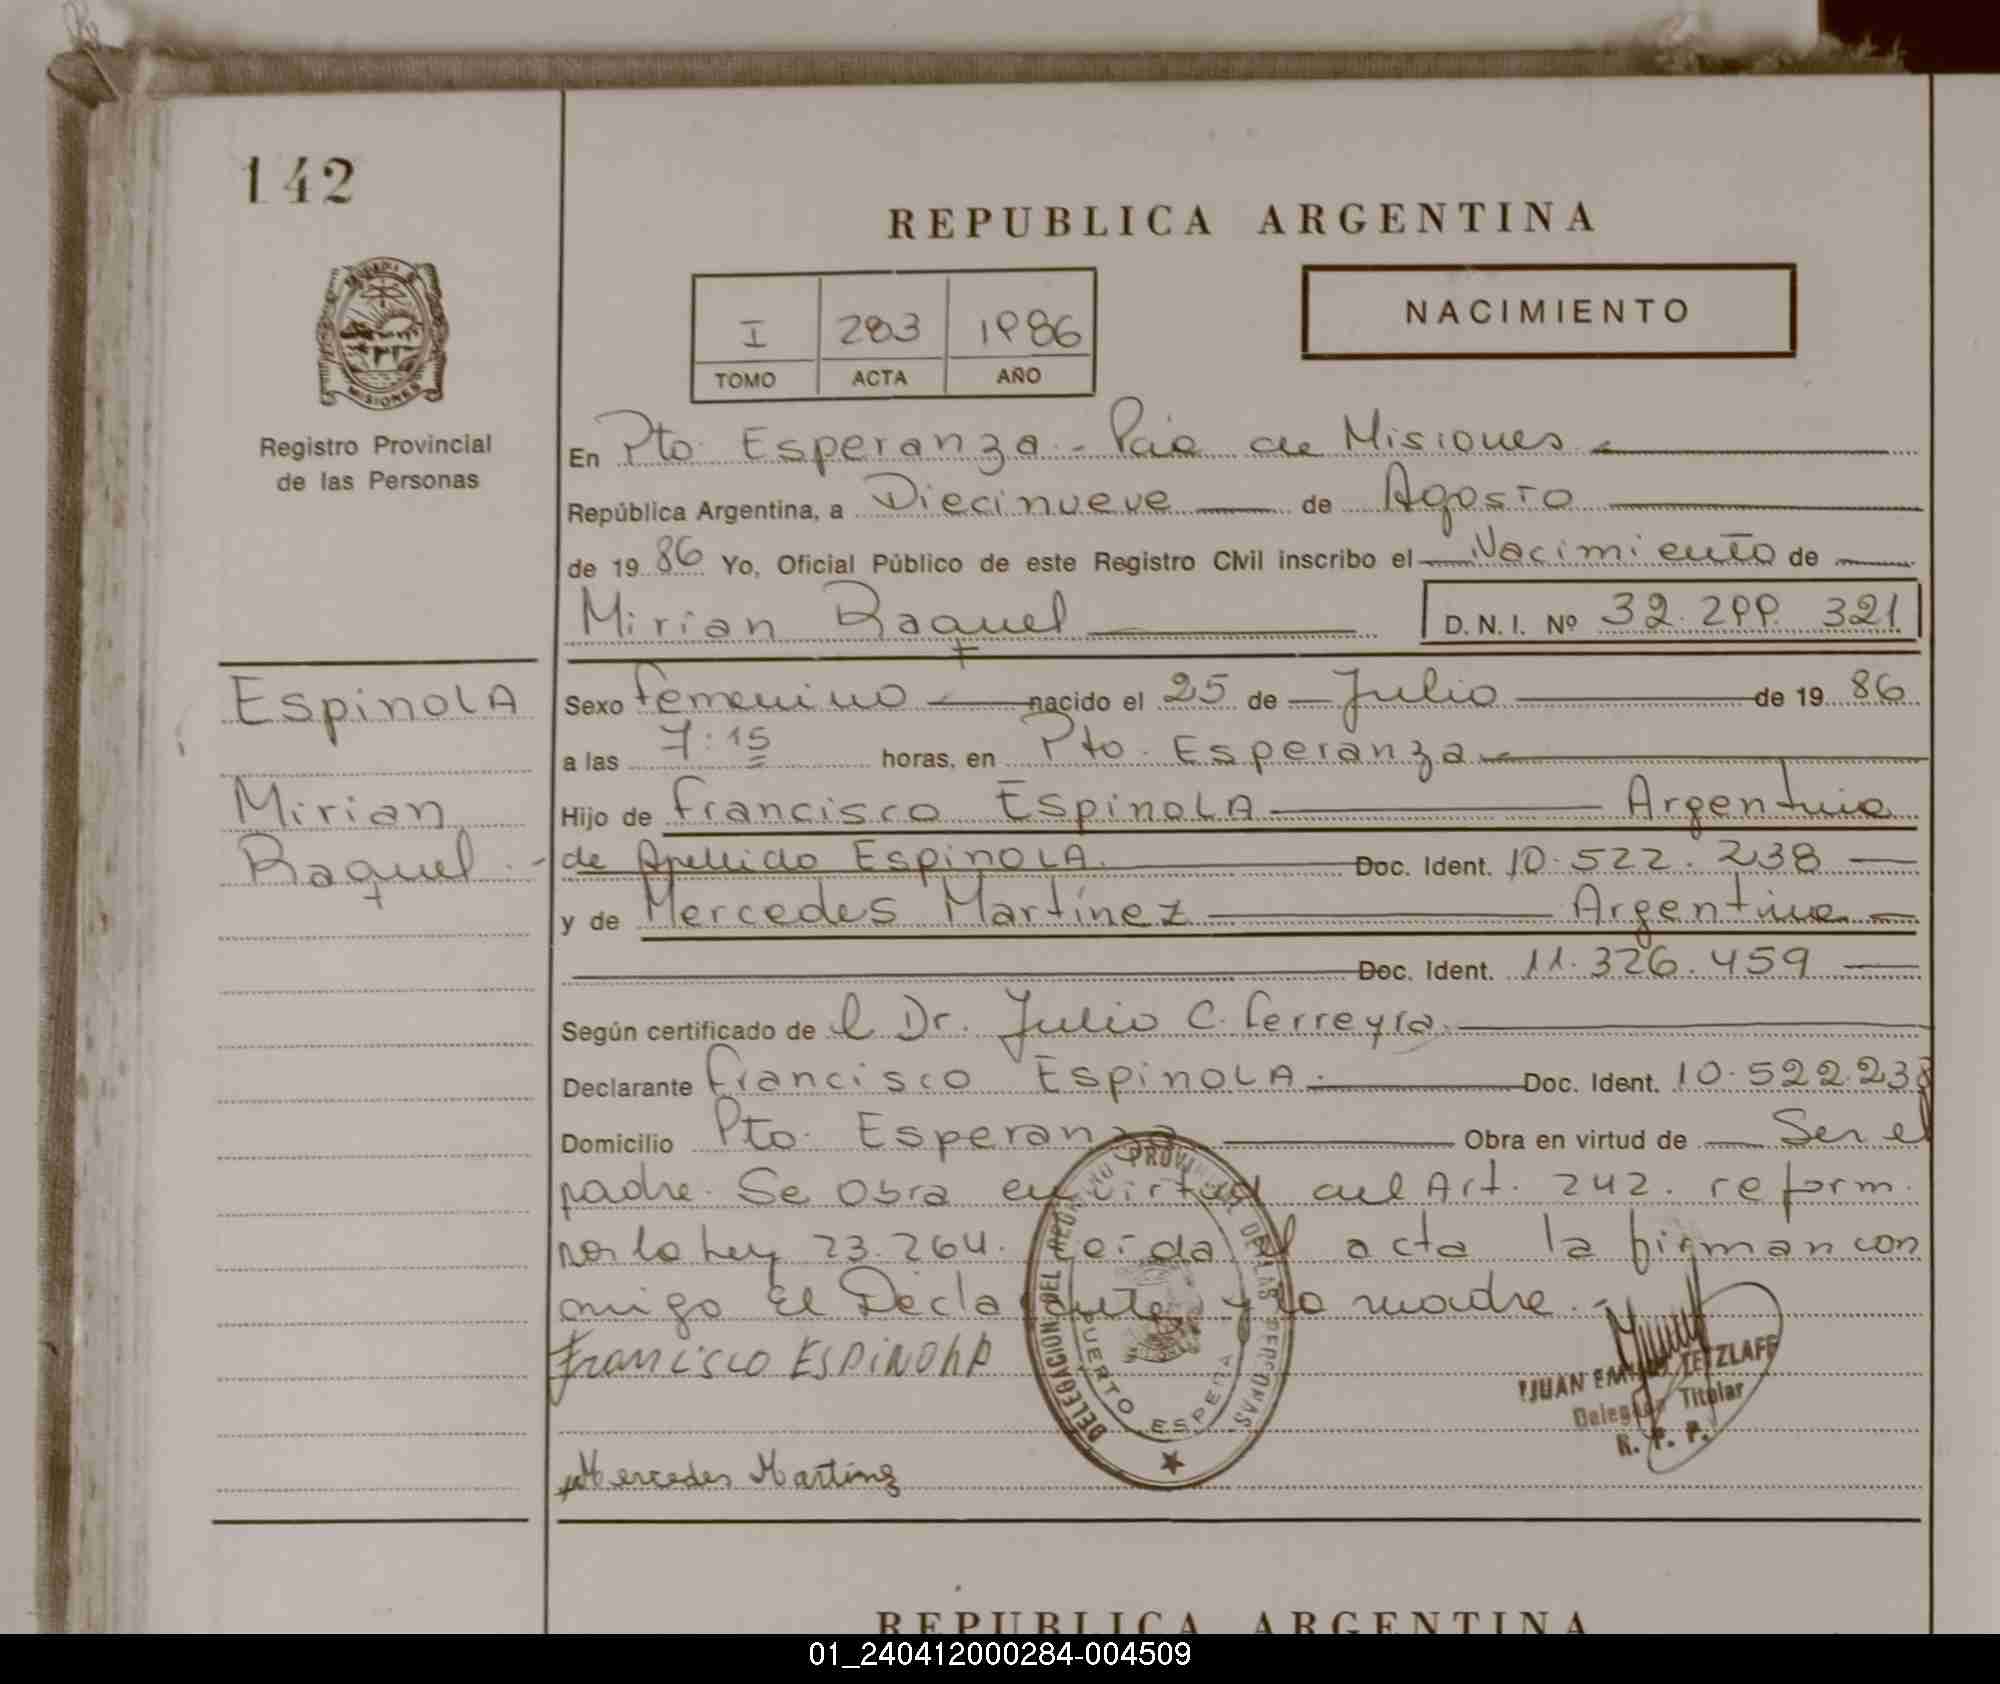 142
REPUBLICA ARGENTINA
NACIMIENTO
I 283 1986
TOMO ACTA AÑO
MISIONES
Registro Provincial
de las Personas
En Pto. Esperanza - Pcia de Misiones
República Argentina, a Diecinueve de Agosto
de 1986 Yo, Oficial Público de este Registro Civil inscribo el Nacimiento de
Mirian Raquel D.N.I. Nº 32.299.321
Espinola
Mirian
Raquel.-
Sexo femenino nacido el 25 de Julio de 1986
a las 7:15 horas, en Pto. Esperanza
Hijo de Francisco Espinola Argentino
de Apellido Espinola. Doc. Ident. 10.522.238
y de Mercedes Martínez Argentina
Doc. Ident. 11.326.459
Según certificado de el Dr. Julio C. Ferreyra.
Declarante Francisco Espinola. Doc. Ident. 10.522.238
Domicilio Pto. Esperanza Obra en virtud de Ser el
padre. Se obra en virtud del Art. 242. reform.
por la Ley 23.264. Leída el acta la firman con
migo El Declarante y la madre.-
Francisco ESPINOLA
Mercedes Martinez
DELEGACION DEL REGISTRO PROVINCIAL DE LAS PERSONAS
PUERTO ESPERANZA
JUAN TETZLAFF
Delegado Titular
R. P. P.
REPUBLICA ARGENTINA
01_240412000284-004509